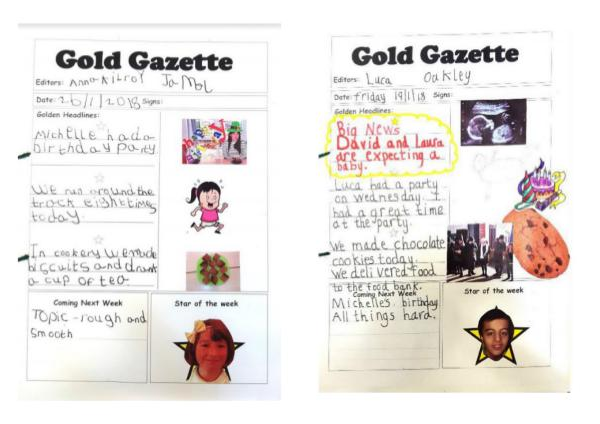 Gold Gazette
Editors: Anna-Kilroy Jamal
Date: 26/1/2018 Signs:
Golden Headlines:
Michelle had a
birthday party.
We run around the
track eight times
today.
In cookery we made
biscuits and drank
a cup of tea
Coming Next Week
Topic - rough and
smooth
Star of the week
Gold Gazette
Editors: Luca Oakley
Date: Friday 19/1/18 Signs:
Golden Headlines:
Big News
David and Laura
are expecting a
baby.
Luca had a party
on wednesday. I
had a great time
at the party.
We made chocolate
cookies today.
We delivered food
to the food bank.
Coming Next Week
Michelles birthday
All things hard.
Star of the week